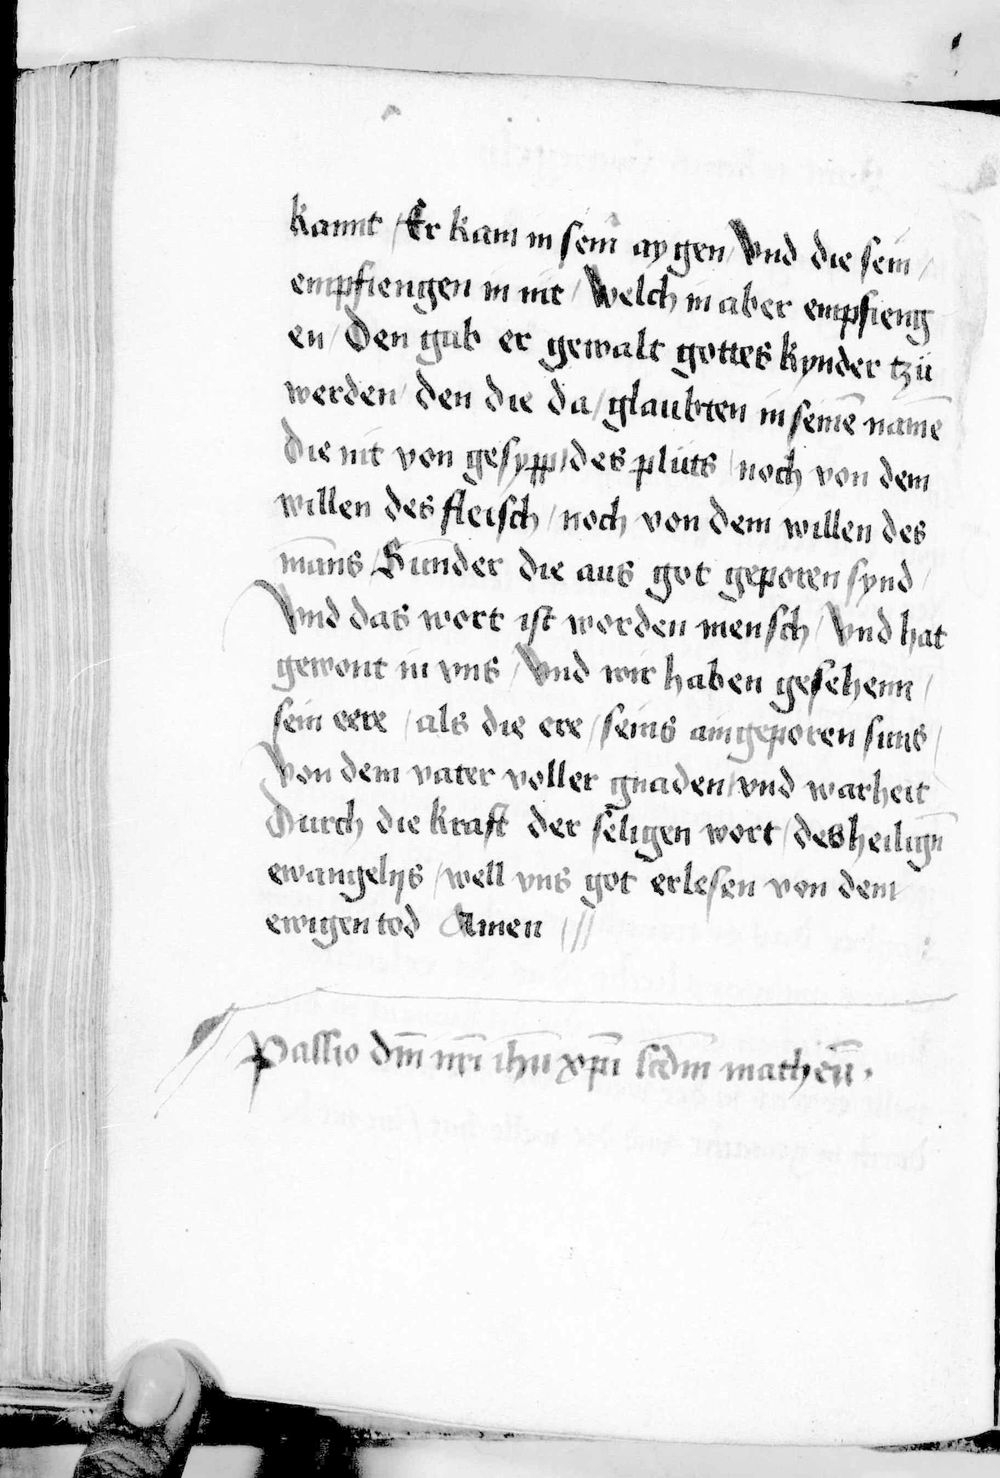 kannt / Er kam in sein aygen / Vnd die sein /
empfiengen in nit / Welch in aber empfieng
en / Den gab er gewalt gottes kynder tzü
werden / den die da / glaubten in seinē namē
Die nit von gesypp / des plüts / noch von dem
willen des fleisch / noch von dem willen des
mans / Sunder die aus got geporen synd /
Vnd das wort ist worden mensch / Vnd hat
gewont in vns / Vnd wir haben gesehenn /
sein eere / als die ere / seins aingeporen suns /
Von dem vater voller gnaden / vnd warheit
Durch die kraft der seligen wort / des heilign̄
ewangelijs / well vns got erlesen von dem
ewigen tod Amen ///
Passio dm̄ nr̄i ihū xp̄i scdm̄ matheū .